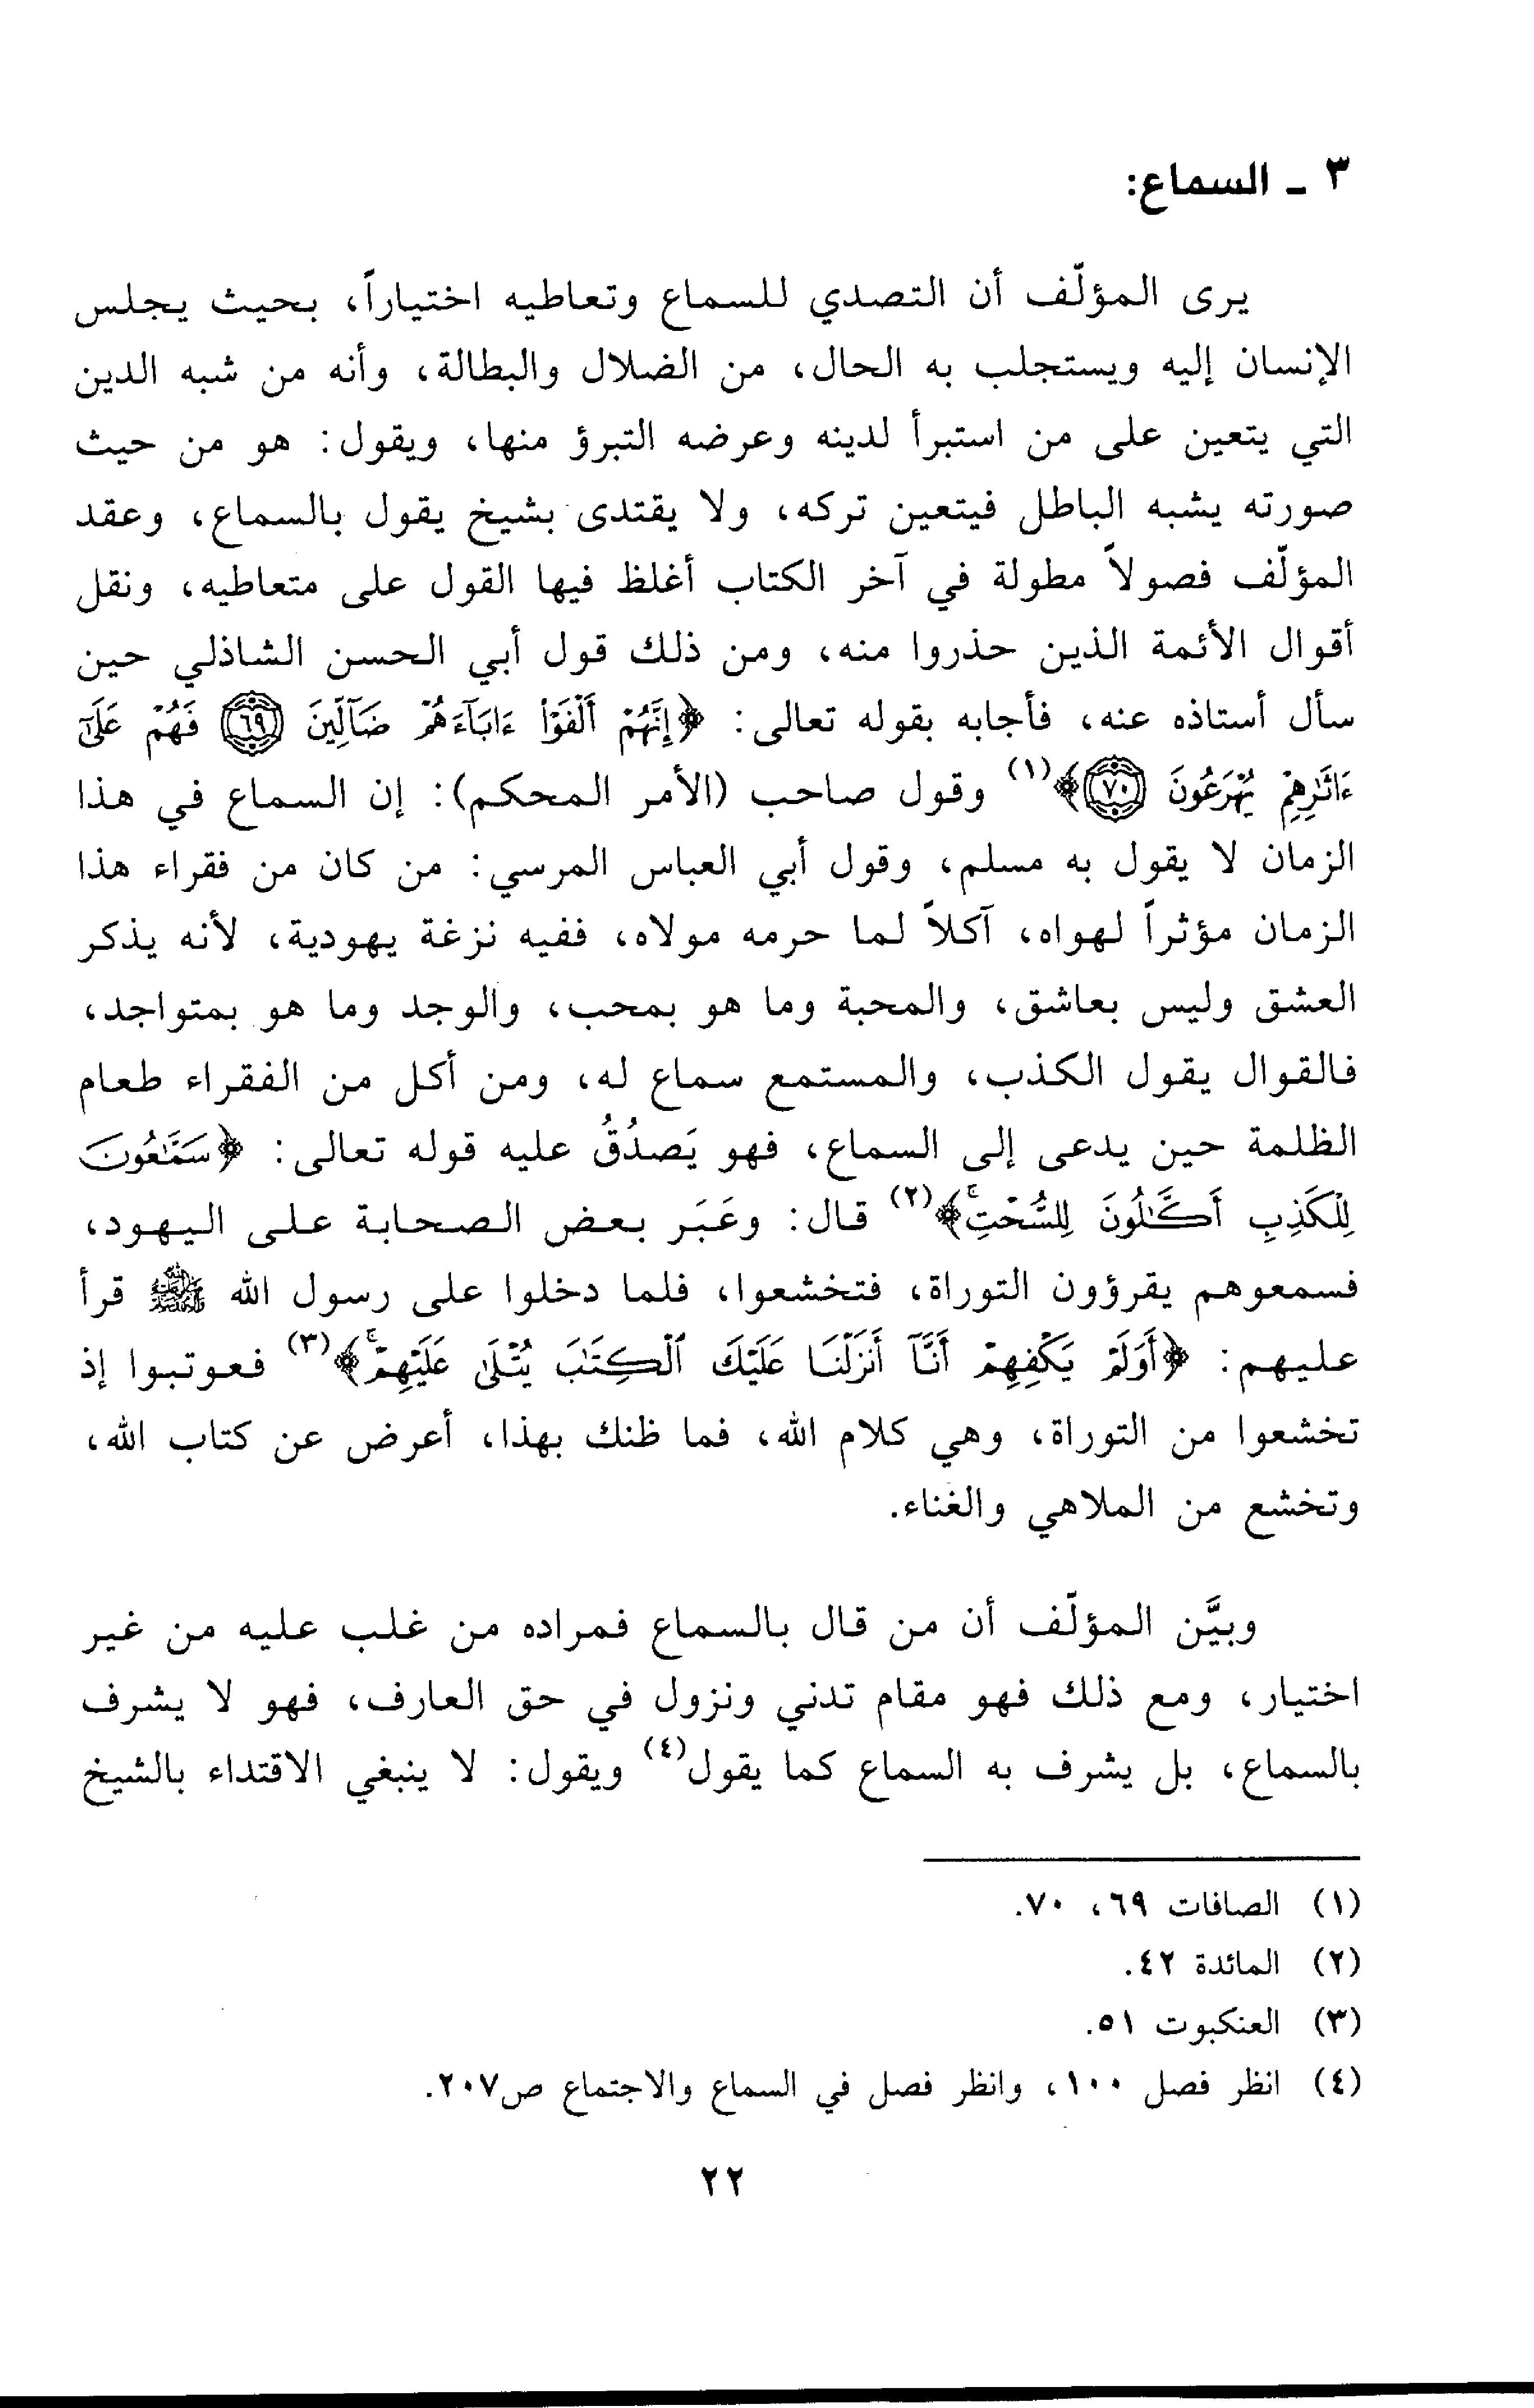 ٣ ـ السماع:
يرى المؤلّف أن التصدي للسماع وتعاطيه اختياراً، بحيث يجلس
الإنسان إليه ويستجلب به الحال، من الضلال والبطالة، وأنه من شبه الدين
التي يتعين على من استبرأ لدينه وعرضه التبرؤ منها، ويقول: هو من حيث
صورته يشبه الباطل فيتعين تركه، ولا يقتدى بشيخ يقول بالسماع، وعقد
المؤلّف فصولاً مطولة في آخر الكتاب أغلظ فيها القول على متعاطيه، ونقل
أقوال الأئمة الذين حذروا منه، ومن ذلك قول أبي الحسن الشاذلي حين
سأل أستاذه عنه، فأجابه بقوله تعالى: ﴿إِنَّهُمْ أَلْفَوْا۟ ءَابَآءَهُمْ ضَآلِّينَ ٦٩ فَهُمْ عَلَىٰٓ
ءَاثَٰرِهِمْ يُهْرَعُونَ ٧٠﴾(١) وقول صاحب (الأمر المحكم): إن السماع في هذا
الزمان لا يقول به مسلم، وقول أبي العباس المرسي: من كان من فقراء هذا
الزمان مؤثراً لهواه، آكلاً لما حرمه مولاه، ففيه نزغة يهودية، لأنه يذكر
العشق وليس بعاشق، والمحبة وما هو بمحب، والوجد وما هو بمتواجد،
فالقوال يقول الكذب، والمستمع سماع له، ومن أكل من الفقراء طعام
الظلمة حين يدعى إلى السماع، فهو يَصدُقُ عليه قوله تعالى: ﴿سَمَّٰعُونَ
لِلْكَذِبِ أَكَّٰلُونَ لِلسُّحْتِ ۚ﴾(٢) قال: وعَبَر بعض الصحابة على اليهود،
فسمعوهم يقرؤون التوراة، فتخشعوا، فلما دخلوا على رسول الله ﷺ قرأ
عليهم: ﴿أَوَلَمْ يَكْفِهِمْ أَنَّآ أَنزَلْنَا عَلَيْكَ ٱلْكِتَٰبَ يُتْلَىٰ عَلَيْهِمْ ۚ﴾(٣) فعوتبوا إذ
تخشعوا من التوراة، وهي كلام الله، فما ظنك بهذا، أعرض عن كتاب الله،
وتخشع من الملاهي والغناء.
وبيَّن المؤلّف أن من قال بالسماع فمراده من غلب عليه من غير
اختيار، ومع ذلك فهو مقام تدني ونزول في حق العارف، فهو لا يشرف
بالسماع، بل يشرف به السماع كما يقول(٤) ويقول: لا ينبغي الاقتداء بالشيخ
(١) الصافات ٦٩، ٧٠.
(٢) المائدة ٤٢.
(٣) العنكبوت ٥١.
(٤) انظر فصل ١٠٠، وانظر فصل في السماع والاجتماع ص٢٠٧.
٢٢